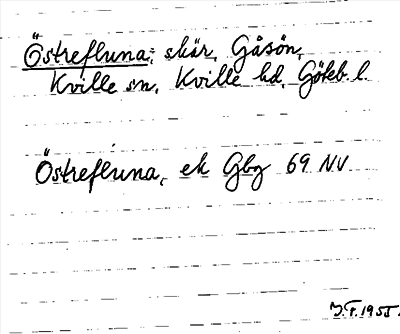 Östrefluna, skär, Gåsön,
Kville sn, Kville hd, Göteb. l.
Östrefluna, ek Gbg 69 NV
J.F. 1955.